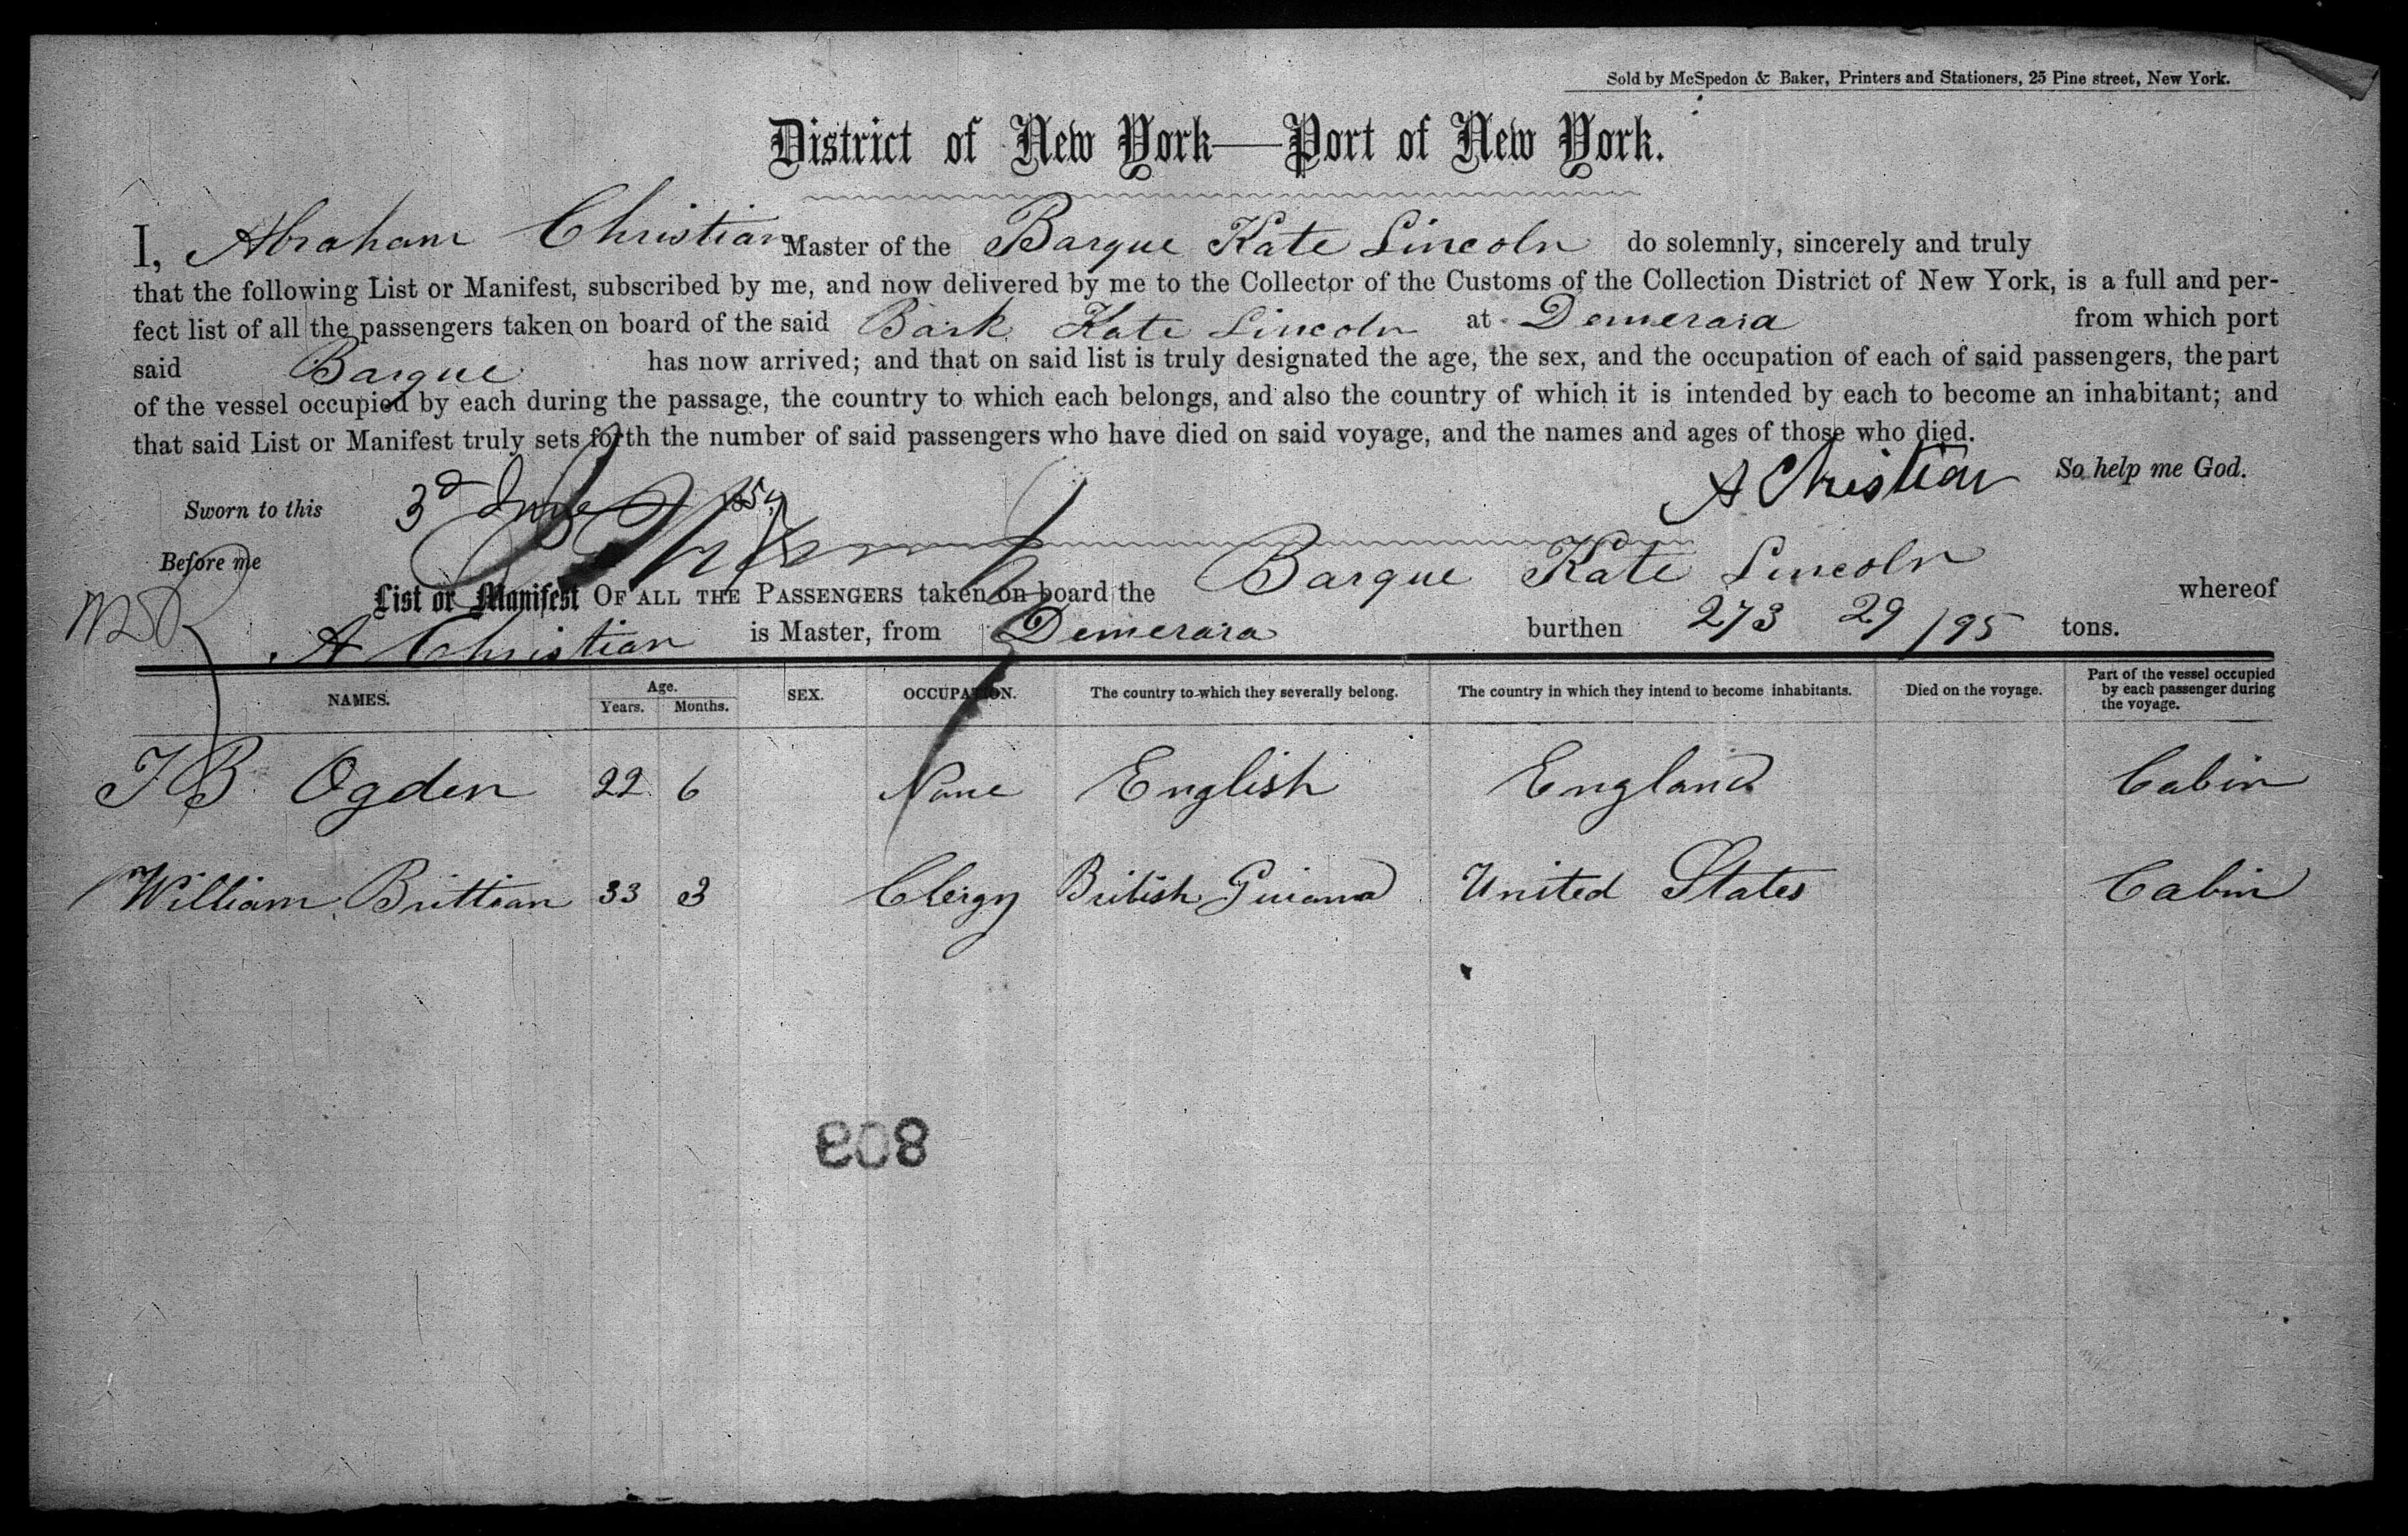 Sold by McSpedon & Baker, Printers and Stationers, 25 Pine street, New York.
District of New York—Port of New York.
I, Abraham Christian Master of the Barque Kate Lincoln do solemnly, sincerely and truly
that the following List or Manifest, subscribed by me, and now delivered by me to the Collector of the Customs of the Collection District of New York, is a full and per-
fect list of all the passengers taken on board of the said Bark Kate Lincoln at Demerara from which port
said Barque has now arrived; and that on said list is truly designated the age, the sex, and the occupation of each of said passengers, the part
of the vessel occupied by each during the passage, the country to which each belongs, and also the country of which it is intended by each to become an inhabitant; and
that said List or Manifest truly sets forth the number of said passengers who have died on said voyage, and the names and ages of those who died.
A Christian So help me God.
Sworn to this 3d June
Before me
List or Manifest OF ALL THE PASSENGERS taken on board the Barque Kate Lincoln whereof
A Christian is Master, from Demerara burthen 273 29/95 tons.
NAMES. Age. Years. Months. SEX. OCCUPATION. The country to which they severally belong. The country in which they intend to become inhabitants. Died on the voyage. Part of the vessel occupied by each passenger during the voyage.
J B Ogden 22 6 None English England Cabin
William Brittian 33 3 Clergy British Guiana United States Cabin
809